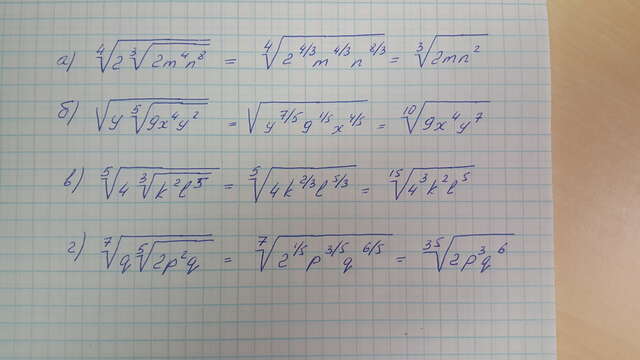 а) ⁴√(2³√(2m⁴n⁸)) = ⁴√(2^(4/3) m^(4/3) n^(8/3)) = ³√(2mn²)
б) √(y⁵√(9x⁴y²)) = √(y^(7/5) 9^(1/5) x^(4/5)) = ¹⁰√(9x⁴y⁷)
в) ⁵√(4³√(k²ℓ⁵)) = ⁵√(4k^(2/3)ℓ^(5/3)) = ¹⁵√(4³k²ℓ⁵)
г) ⁷√(q⁵√(2p²q)) = ⁷√(2^(1/5) p^(3/5) q^(6/5)) = ³⁵√(2p³q⁶)